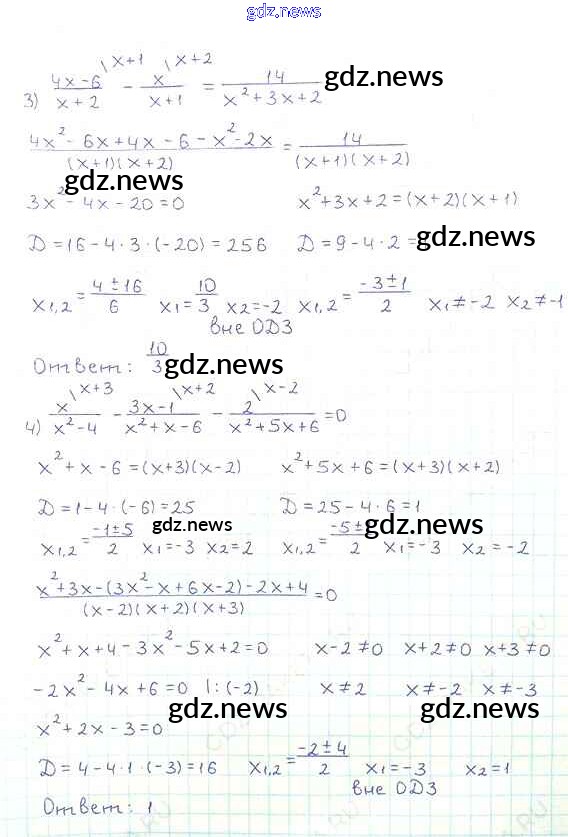 gdz.news
3) (4x-6)/(x+2) \x+1 - x/(x+1) \x+2 = 14/(x²+3x+2) gdz.news
(4x²-6x+4x-6-x²-2x)/((x+1)(x+2)) = 14/((x+1)(x+2))
gdz.news
3x²-4x-20=0 x²+3x+2=(x+2)(x+1)
D=16-4·3·(-20)=256 D=9-4·2= gdz.news
x1,2=(4±16)/6 x1=10/3 x2=-2 x1,2=(-3±1)/2 x1≠-2 x2≠-1
вне ОДЗ
Ответ: 10/3 gdz.news
4) x/(x²-4) \x+3 - (3x-1)/(x²+x-6) \x+2 - 2/(x²+5x+6) \x-2 =0
x²+x-6=(x+3)(x-2) x²+5x+6=(x+3)(x+2)
D=1-4·(-6)=25 D=25-4·6=1
x1,2=(-1±5)/2 x1=-3 x2=2 gdz.news x1,2=(-5±)/2 x1=-3 x2=-2 gdz.news
(x²+3x-(3x²-x+6x-2)-2x+4)/((x-2)(x+2)(x+3))=0
x²+x+4-3x²-5x+2=0 x-2≠0 x+2≠0 x+3≠0
-2x²-4x+6=0 |:(-2) x≠2 x≠-2 x≠-3
gdz.news gdz.news
x²+2x-3=0
D=4-4·1·(-3)=16 x1,2=(-2±4)/2 x1=-3 x2=1
вне ОДЗ
Ответ: 1